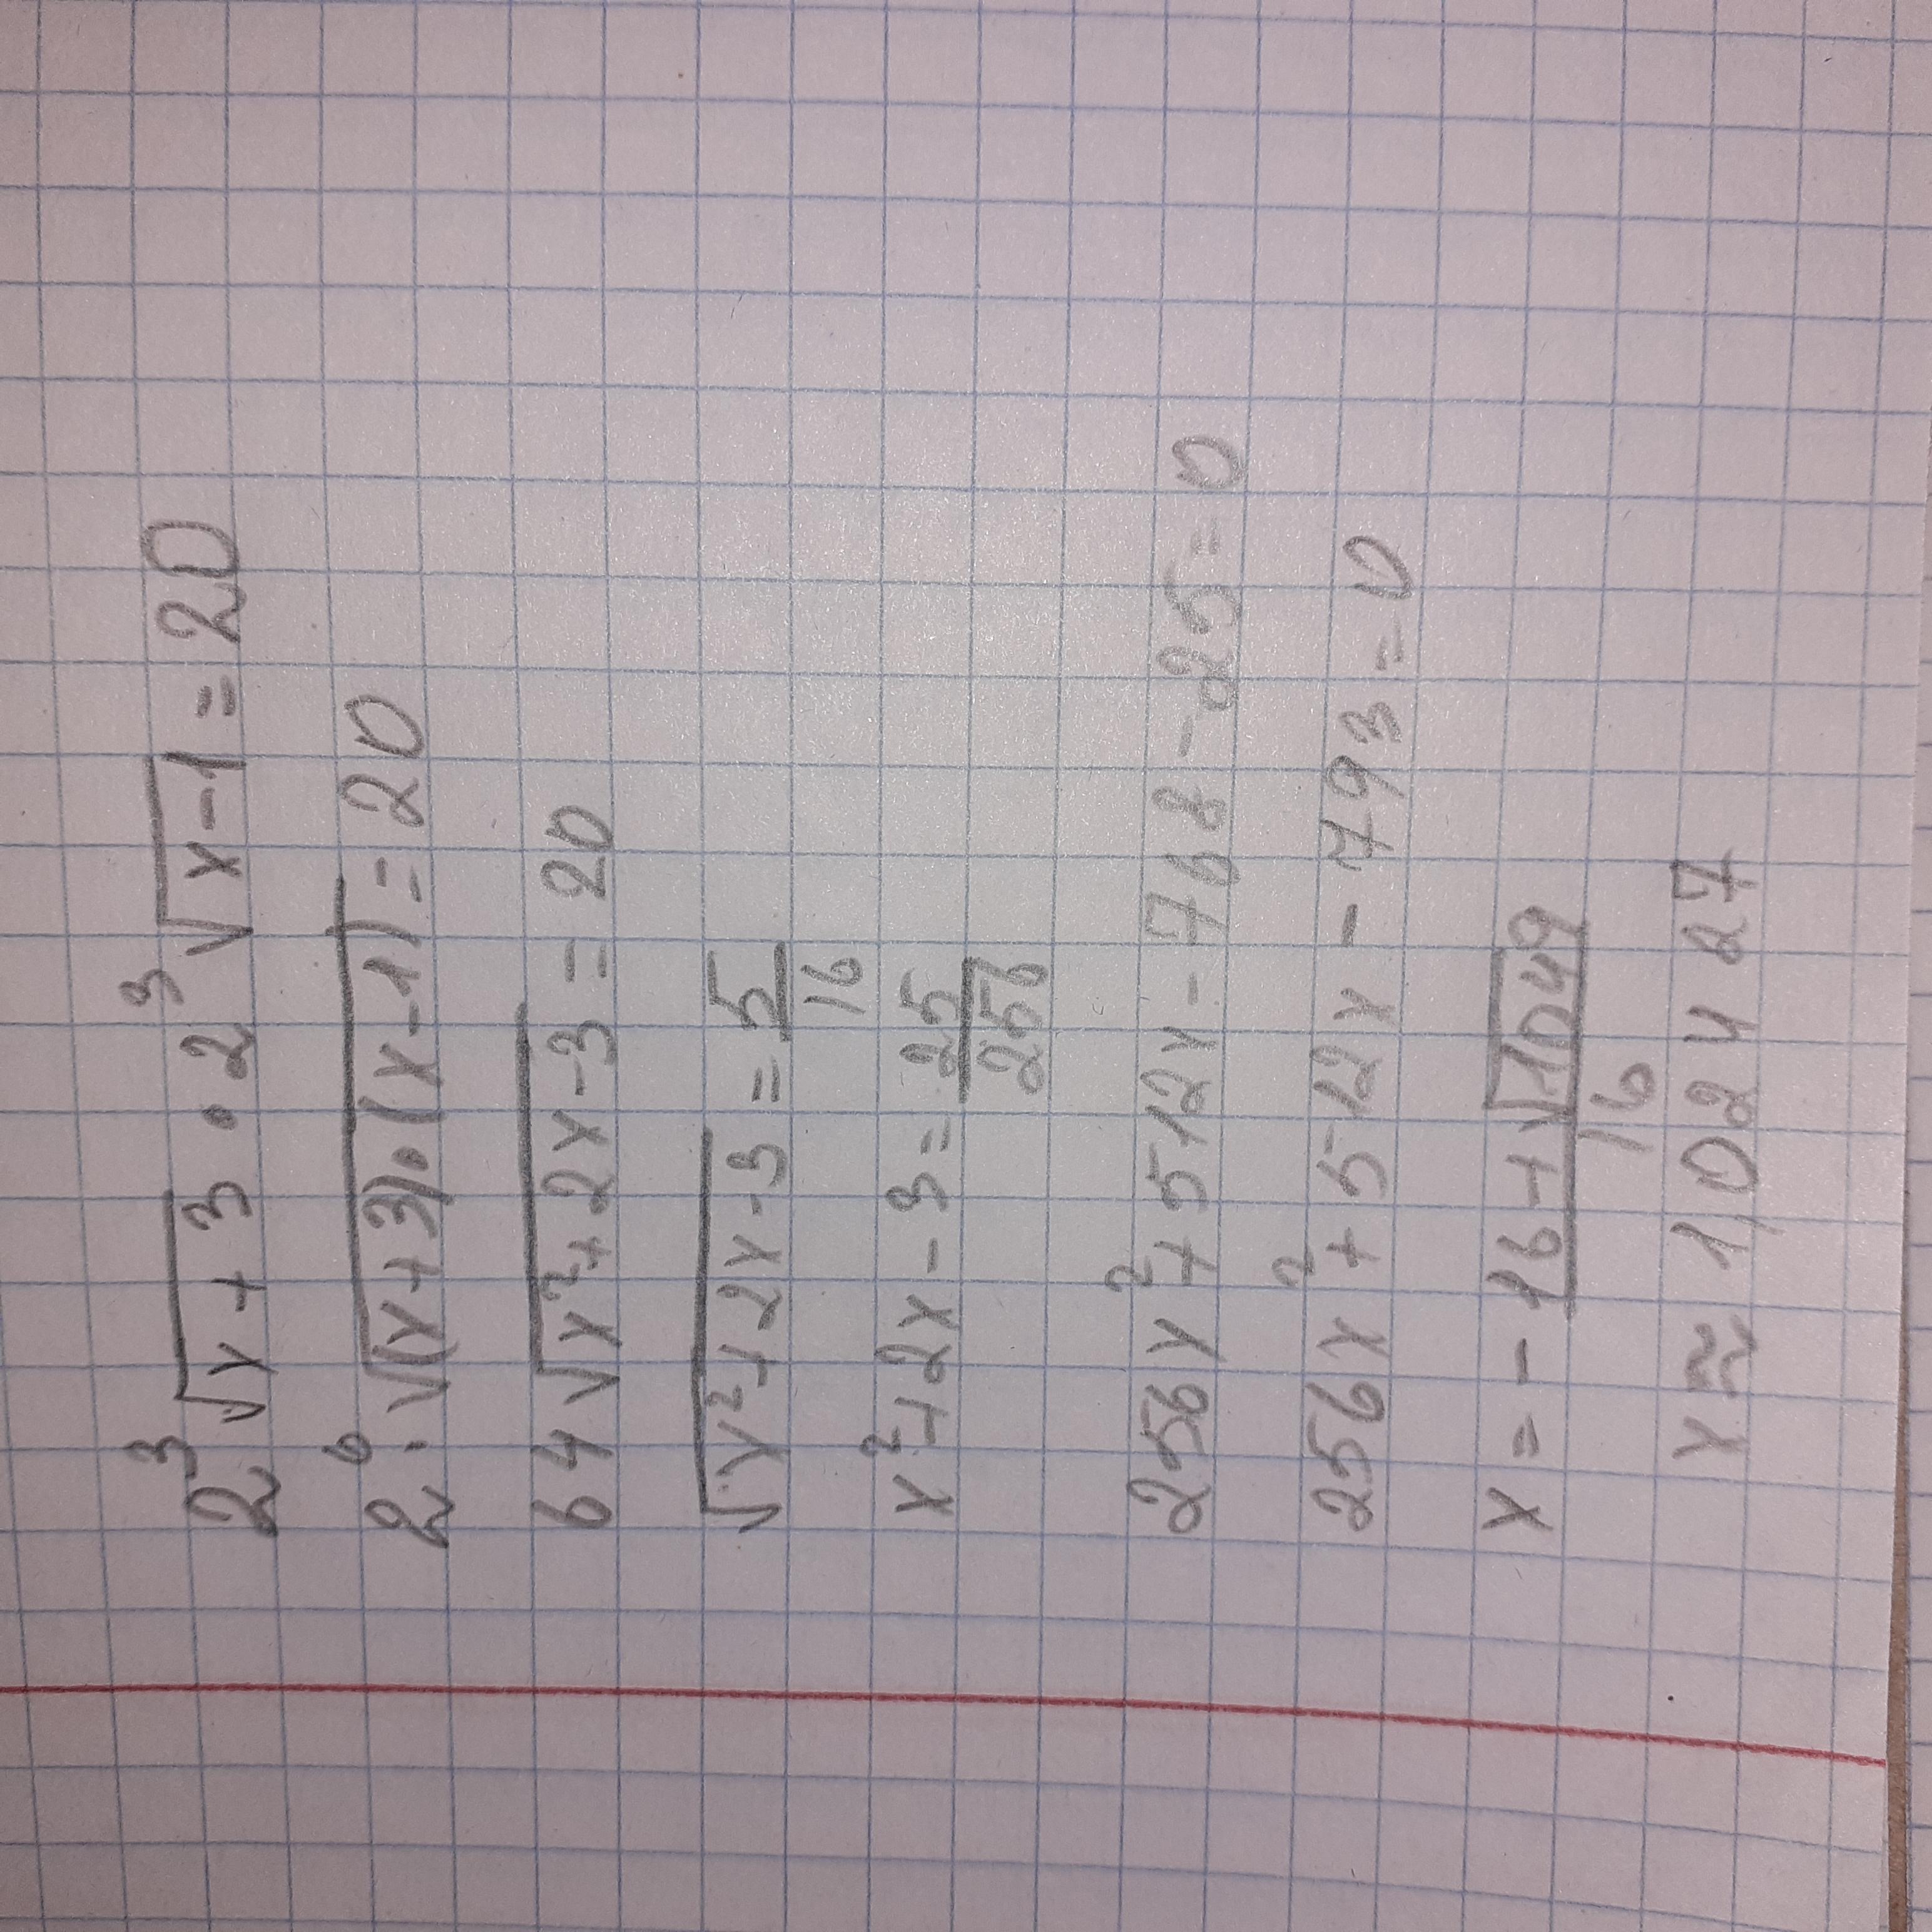 2³√x+3 · 2³√x-1 = 20
2⁶·√(x+3)·(x-1) = 20
64√x²+2x-3 = 20
√x²+2x-3 = 5/16
x²+2x-3 = 25/256
256x²+512x-768-25=0
256x²+512x-793=0
x = -16+√1049/16
x ≈ 1,02427